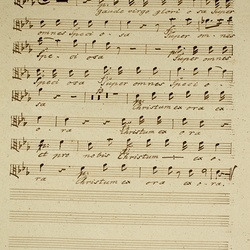 Gaude virgo glori o sa super
omnes Speci o- sa Super om-nes
Spe- ci osa Super omnes
speci osa Super omnes Speci o-
sa Christum ex ora ex
o - ra Christum ex ora
et pro nobis Christum ex o-
ra Christum ex ora ex o-ra.